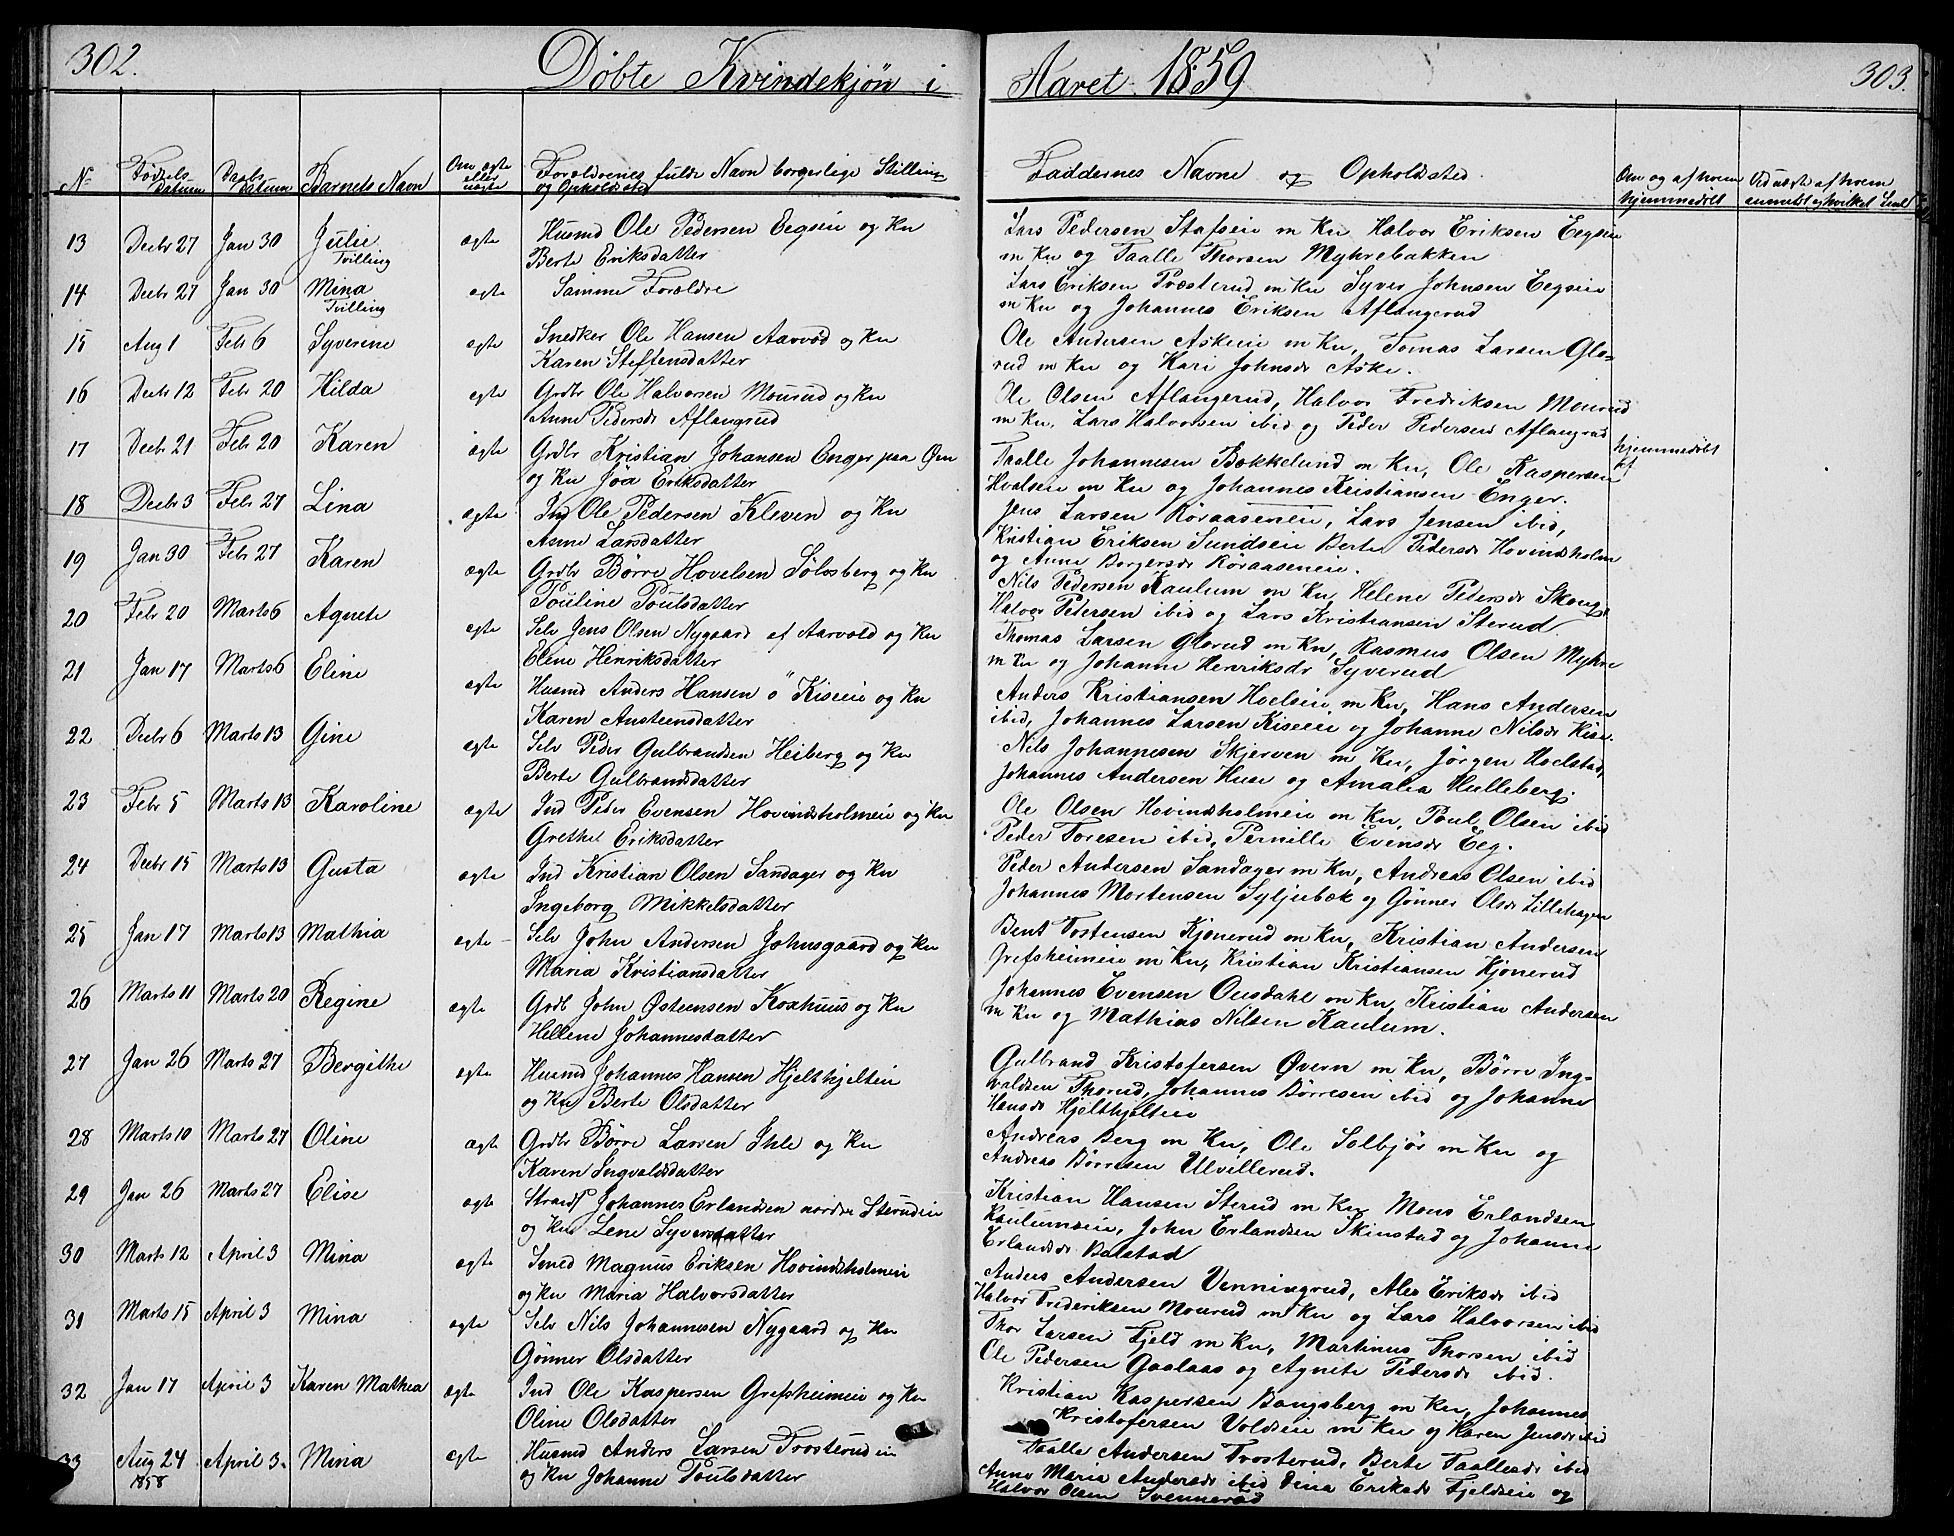 302.
Döbte Kvindekjön i
Aaret 1859
303.
No
Födsels Datum
Daabs Datum
Barnets Navn
Om ægte eller uægte
Forældrenes fulde Navn borgerlige Stilling og Opholdsted
Faddernes Navne og Opholdsted
Om og af hvem hjemmedöbt
Ved næste af hvem
13 Decbr 27 Jan 30 Julie Tvilling ægte Husmd Ole Pedersen Eegseie og Ku
Berte Eriksdatter
Lars Pedersen Stafseie m Ku Halvor Eriksen Eegseie
m Ku og Taalle Thorsen Myhrebakken
14 Decbr 27 Jan 30 Mina Tvilling ægte Samme Forældre
Lars Eriksen Præsterud m Ku Syver Johnsen Eegseie
m Ku og Johannes Eriksen Aflangerud
15 Aug 1 Febr 6 Syverine ægte Snedker Ole Hansen Aarvod og Ku
Karen Steffensdatter
Ole Andersen Askeie m Ku, Tomas Larsen Glo-
rud m Ku og Kari Johnsdr Aske.
16 Decbr 12 Febr 20 Hilda ægte Grdbr Ole Halvorsen Mourud og Ku
Anne Pedersdr Aflangrud
Ole Olsen Aflangerud, Halvor Fredriksen Mourud
m Ku, Lars Halvorsen ibid og Peder Pedersen Aflangrud
17 Decbr 21 Febr 20 Karen ægte Grdbr Kristian Johansen Enger paa Øen
og Ku Jöa Eriksdatter
Taalle Johannesen Bækkelund m Ku, Ole Kaspersen
Hvalseie m Ku og Johannes Kristiansen Enger.
hjemmedöbt
18 Decbr 3 Febr 27 Lina ægte Ind Ole Pedersen Kleven og Ku
Anne Larsdatter
Jens Larsen Röraaseneie, Lars Jensen ibid,
Kristian Eriksen Sundseie Berte Pedersdr Hovindsholm
og Anne Borgersdr Röraaseneie.
19 Jan 30 Febr 27 Karen ægte Grdbr Börre Hovelsen Sölosberg og Ku
Pouline Poulsdatter
Nils Pedersen Kaulum m Ku, Helene Pedersdr Skougs
Halvor Petersen ibid og Lars Kristiansen Sterud
20 Febr 20 Marts 6 Agnete ægte Selv Jens Olsen Nygaard af Aarvold og Ku
Eline Henriksdatter
Thomas Larsen Glorud m Ku, Rasmus Olsen Myhre
m Ku og Johanne Henriksdr Syverud
21 Jan 17 Marts 6 Eline ægte Husmd Anders Hansen ö Kiseie og Ku
Karen Austeensdatter
Anders Kristiansen Hoelseie m Ku, Hans Andersen
ibid, Johannes Larsen Kiseie og Johanne Nilsdr Kise.
22 Decbr 6 Marts 13 Gine ægte Selv Peder Gulbrandsen Heiberg og Ku
Berte Gulbrandsdatter
Nils Johannesen Skjerven m Ku, Jörgen Hoelstad,
Johannes Andersen Huse og Amalia Hulleberg.
23 Febr 5 Marts 13 Karoline ægte Ind Peder Evensen Hovindsholmeie og Ku
Grethe Eriksdatter
Ole Olsen Hovindsholmeie m Ku, Poul Olsen ibid
Peder Toresen ibid, Pernille Evensdr Eeg.
24 Decbr 15 Marts 13 Gusta ægte Ind Kristian Olsen Sandager og Ku
Ingeborg Mikkelsdatter
Peder Andersen Sandager m Ku, Andreas Olsen ibid
Johannes Mortensen Syljubæk og Gönner Olsdr Lillehagen
25 Jan 17 Marts 13 Mathia ægte Selv John Andersen Johnsgaard og Ku
Maria Kristiansdatter
Bent Tostensen Kjonerud m Ku, Kristian Andersen
Grefsheimeie m Ku, Kristian Kristiansen Kjonerud
26 Marts 11 Marts 20 Regine ægte Grdb John Østensen Koxhuus og Ku
Hellene Johannesdatter
Johannes Evensen Ousdahl m Ku, Kristian Andersen
m Ku og Mathias Nilsen Kaulum.
27 Jan 26 Marts 27 Bergithe ægte Husmd Johannes Hansen Hjelthjelteie
og Ku Berte Olsdatter
Gulbrand Kristofersen Øvern m Ku, Börre Ing-
valdsen Thorud, Johannes Börresen ibid og Johanne
Hansdr Hjelthjelteie
28 Marts 10 Marts 27 Oline ægte Grdbr Börre Larsen Ihle og Ku
Karen Ingvaldsdatter
Andreas Berg m Ku, Ole Solbjör m Ku og
Andreas Börresen Ulvillerud.
29 Jan 26 Marts 27 Elise ægte Strands Johannes Erlandsen nordre Sterudeie
og Ku Lene Syversdatter
Kristian Hansen Sterud m Ku Mons Erlandsen
Kaulumseie, John Erlandsen Skinstad og Johanne
Erlandsdr Balstad
30 Marts 12 April 3 Mina ægte Smed Magnus Eriksen Hovindsholmeie
og Ku Maria Halvorsdatter
Anders Andersen Venningrud, Ales Eriksdr ibid
Halvor Frederiksen Mourud m Ku og Lars Halvorsen ibid
31 Marts 15 April 3 Mina ægte Selv Nils Johannesen Nygaard og Ku
Gönner Olsdatter
Thor Larsen Fjeld m Ku, Martinus Thorsen ibid
Ole Pedersen Gaalaas og Agnete Pedersdr ibid.
32 Jan 17 April 3 Karen Mathea ægte Ind Ole Kaspersen Grefsheimeie og Ku
Oline Olsdatter
Kristian Kaspersen Bangsberg m Ku, Johannes
Kristofersen Voldseie m Ku og Karen Jensdr ibid
33 Aug 24 1858 April 3. Mina ægte Husmd Anders Larsen Trosterud eie
og Ku Johanne Poulsdatter
Taalle Andersen Trosterud, Berte Taallesdr ibid
Anne Maria Andersdr ibid Dina Eriksdr Fjeldseie og
Halvor Olsen Svennerud